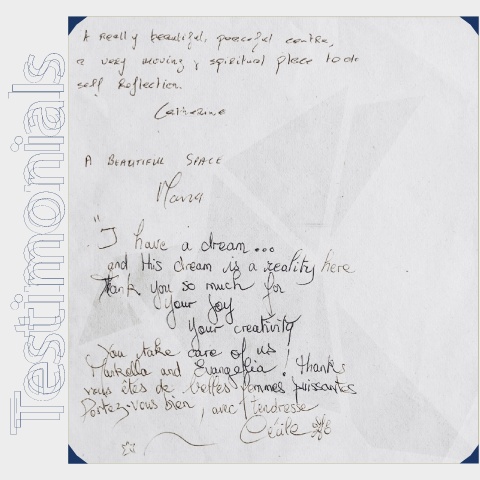 Testimonials
A really beautiful, peaceful centre,
a very moving & spiritual place to do
self reflection.
Catherine
A BEAUTIFUL SPACE
Maria
"I have a dream...
and His dream is a reality here
Thank you so much for
your Joy
your creativity
You take care of us
Markella and Evangelia! Thanks
vous êtes de belles femmes puissantes
Portez-vous bien, avec tendresse
Cécile